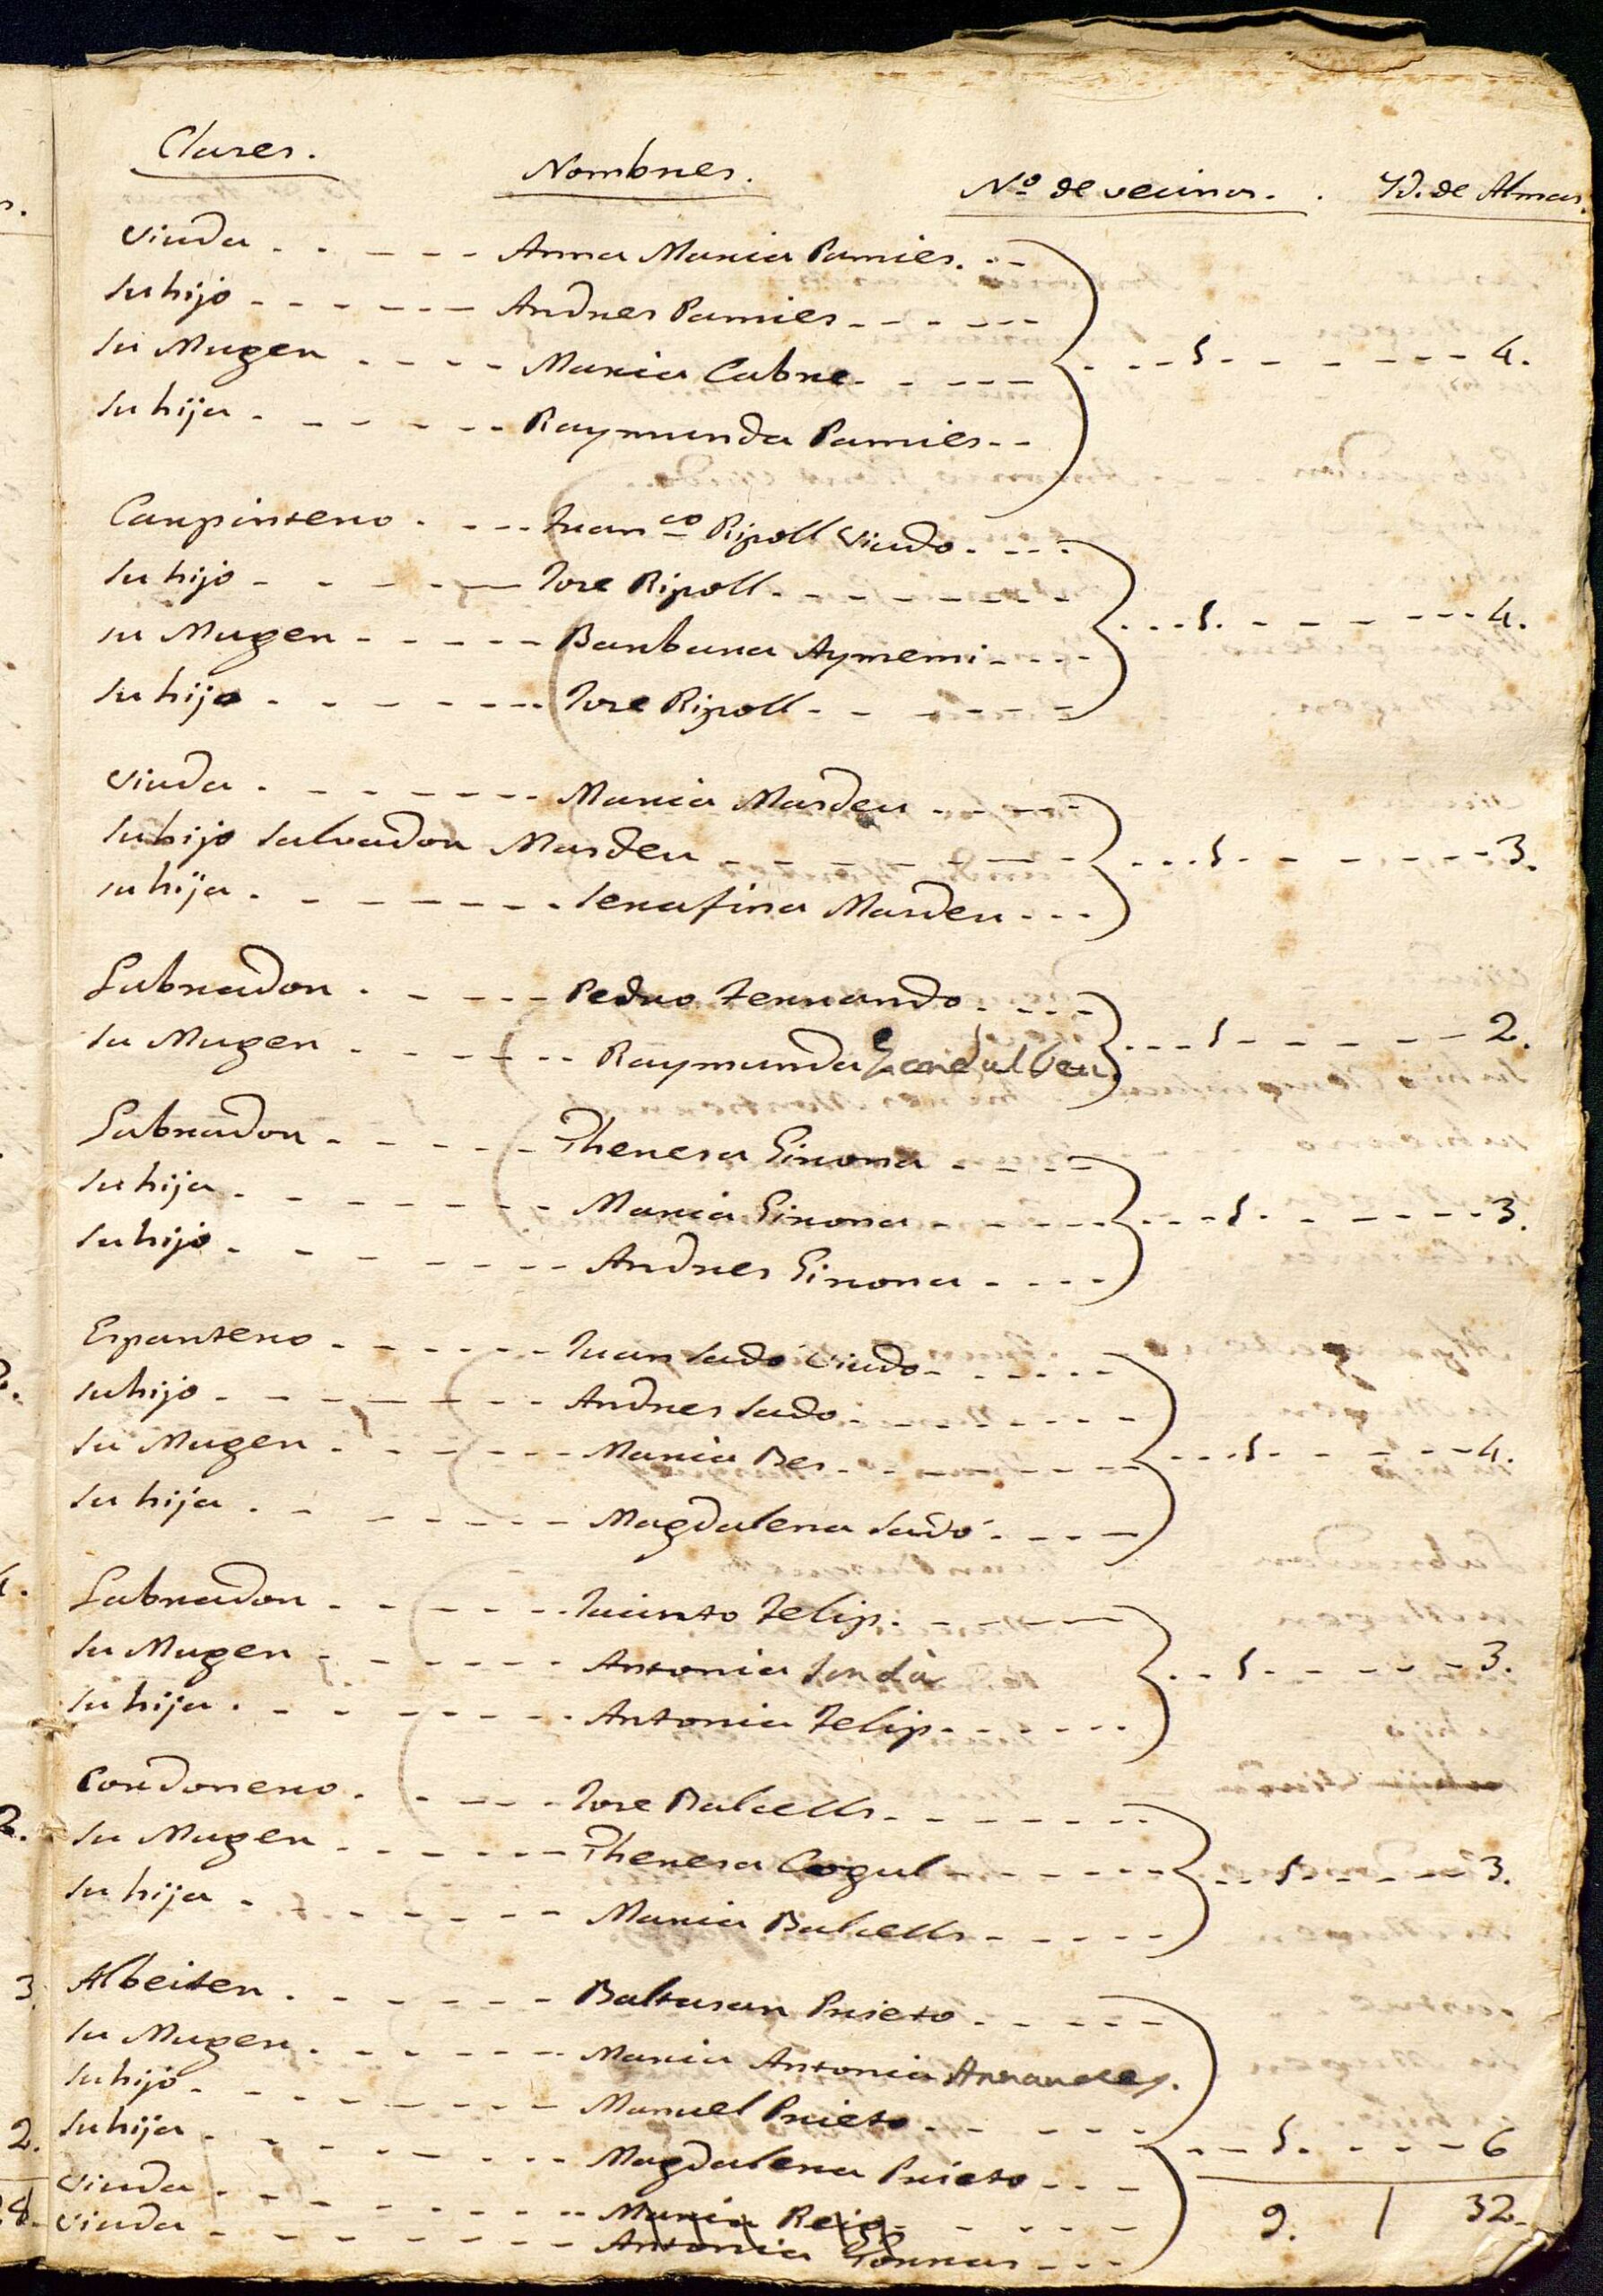 Clases. Nombres. Nº de vecinos. Yd. de Almas.
Viuda - - - - - Anna Maria Pamies. - -
Su hijo - - - - - - Andres Pamies - - - - - -
Su Muger - - - - Maria Cabre - - - - - - - 1 - - - - - - 4.
Su hija - - - - - - Raymunda Pamies - -
Carpintero - - - - Fran.co Ripoll Viudo - - - -
Su hijo - - - - - Jose Ripoll - - - - - - - -
su Muger - - - - - Barbara Aymemi - - - - - - - 1. - - - - - - 4.
Su hijo - - - - - - - Jose Ripoll - - - - - -
Viuda - - - - - - - Maria Masdeu - - - - -
Su hijo Salvador Masdeu - - - - - - - - - - 1 - - - - - - 3.
su hija - - - - - - - Serafina Masdeu - - -
Labrador - - - - - Pedro Ferrando - - - -
Su Muger - - - - - - Raymunda - - - 1 - - - - - - 2.
Labrador - - - - - Theresa Girona - - - -
Su hija - - - - - - - Maria Girona - - - - - - - - 1 - - - - - - 3.
Su hijo - - - - - - - Andres Girona - - - -
Espartero - - - - - - Juan Sadó Viudo - - - - -
su hijo - - - - - - - Andres Sado - - - - - - -
Su Muger - - - - - - Maria Bes - - - - - - - - - - 1 - - - - - 4.
Su hija - - - - - - Magdalena Sadó - - - -
Labrador - - - - - - Jacinto Felip - - - - -
Su Muger - - - - - - Antonia Jordà - - 1 - - - - - - 3.
Su hija - - - - - - - - Antonia Felip - - - - - -
Cordonero - - - - - Jose Balcells - - - - - - -
Su Muger - - - - - - Theresa Cogul - - - - - - - - - 1 - - - - - 3.
Su hija - - - - - - - Maria Balcells - - - - -
Albeiter - - - - - - Baltasar Prieto - - - - -
Su Muger - - - - - - Maria Antonia
Su hijo - - - - - - - - Manuel Prieto - - - - - -
Su hija - - - - - - - - Magdalena Prieto - - - - - - 1 - - - - 6
Viuda - - - - - - - - - Maria Reig - - - - - 9. | 32.
Viuda - - - - - - - - Antonia